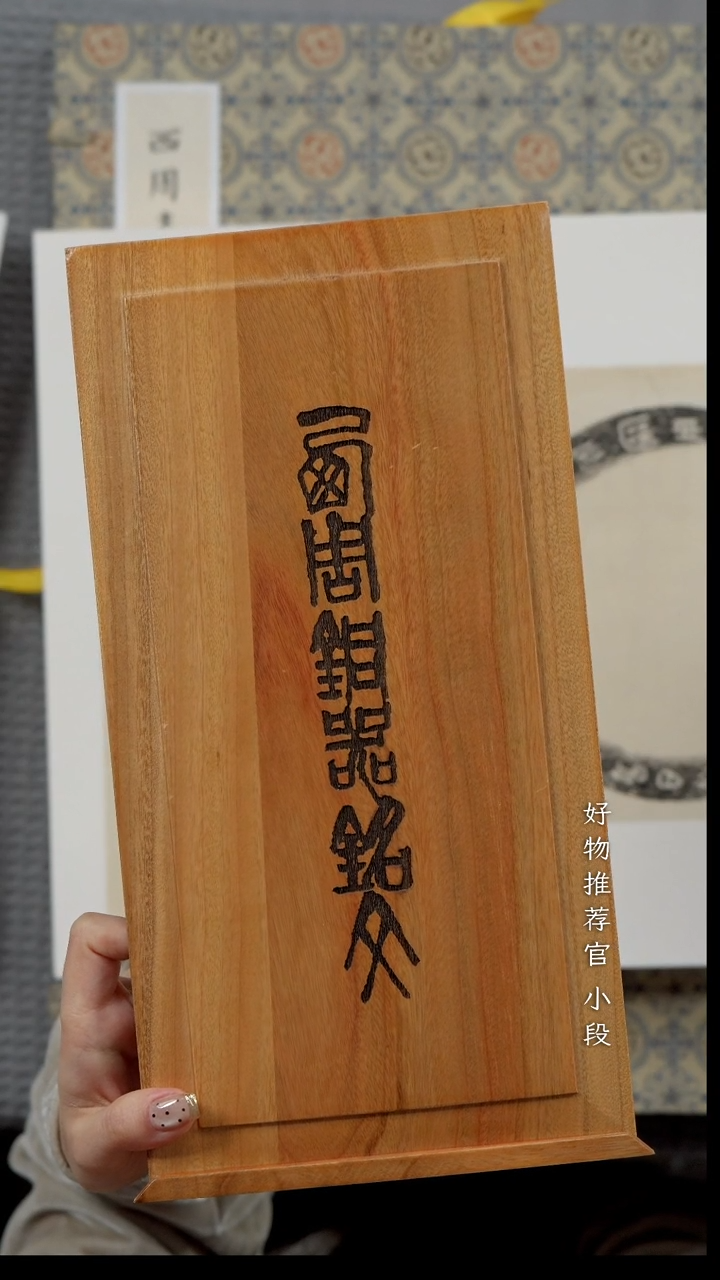 西周
西周銅器銘文
好物推荐官 小段